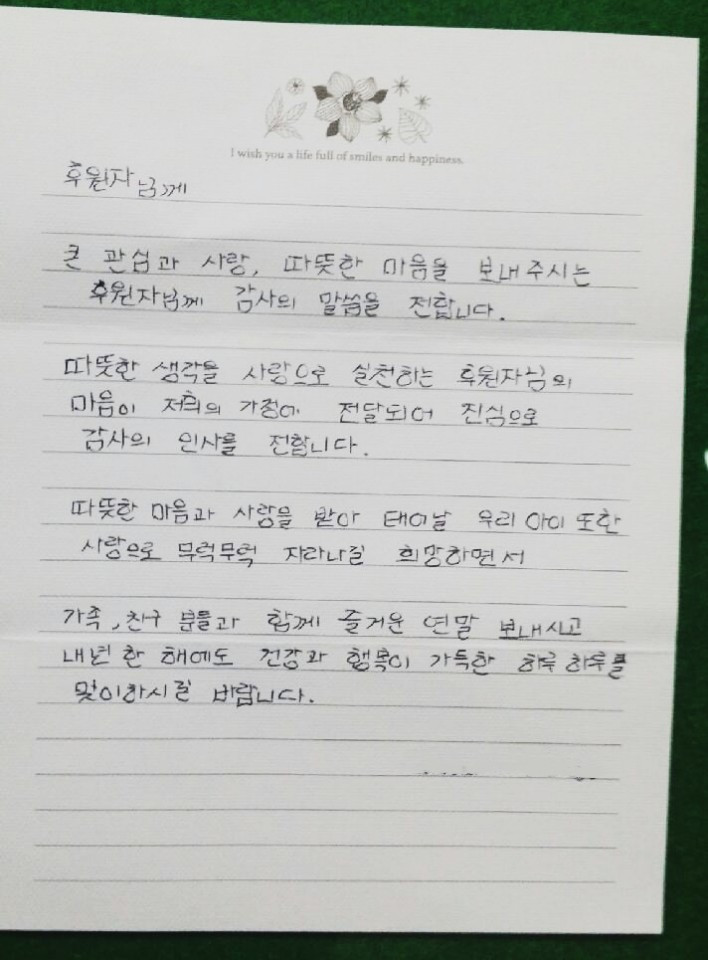 I wish you a life full of smiles and happiness.
후원자님께
큰 관심과 사랑, 따뜻한 마음을 보내주시는
후원자님께 감사의 말씀을 전합니다.
따뜻한 생각을 사랑으로 실천하는 후원자님의
마음이 저희의 가정에 전달되어 진심으로
감사의 인사를 전합니다.
따뜻한 마음과 사랑을 받아 태어날 우리 아이 또한
사랑으로 무럭무럭 자라나길 희망하면서
가족, 친구 분들과 함께 즐거운 연말 보내시고
내년 한 해에도 건강과 행복이 가득한 하루 하루를
맞이하시길 바랍니다.